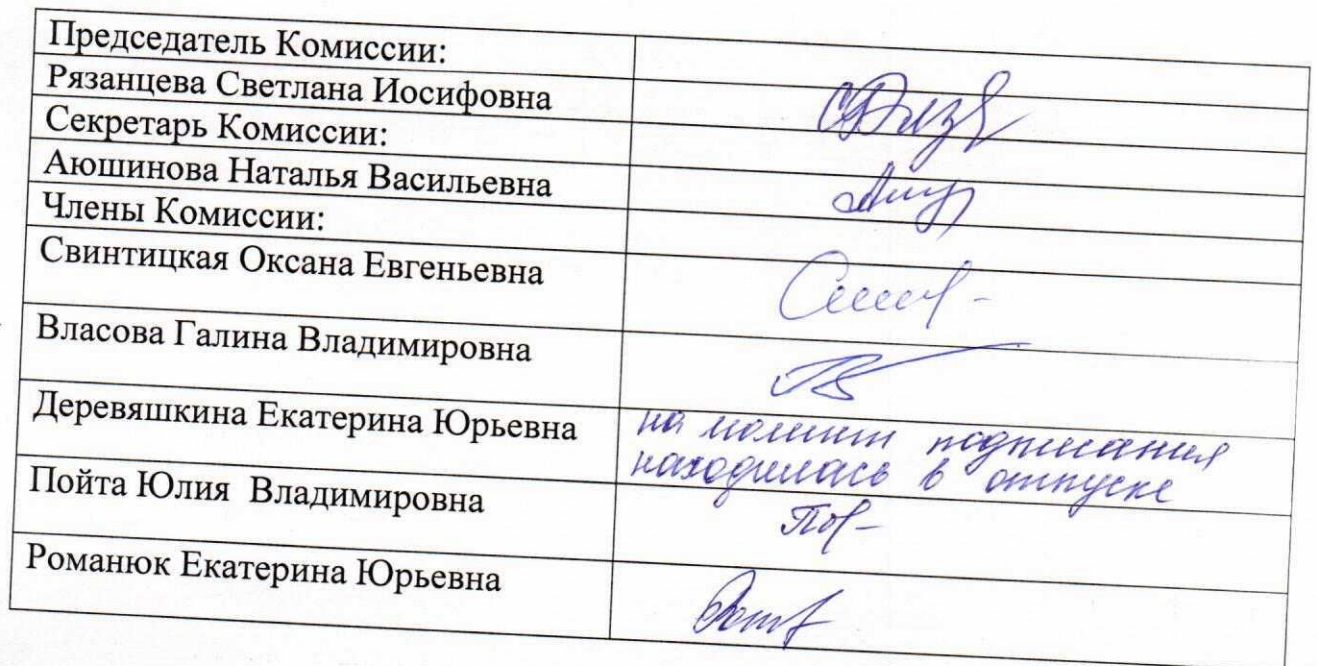 Председатель Комиссии:
Рязанцева Светлана Иосифовна
Секретарь Комиссии:
Аюшинова Наталья Васильевна
Члены Комиссии:
Свинтицкая Оксана Евгеньевна
Власова Галина Владимировна
Деревяшкина Екатерина Юрьевна
на момент подписания
находилась в отпуске
Пойта Юлия Владимировна
Романюк Екатерина Юрьевна